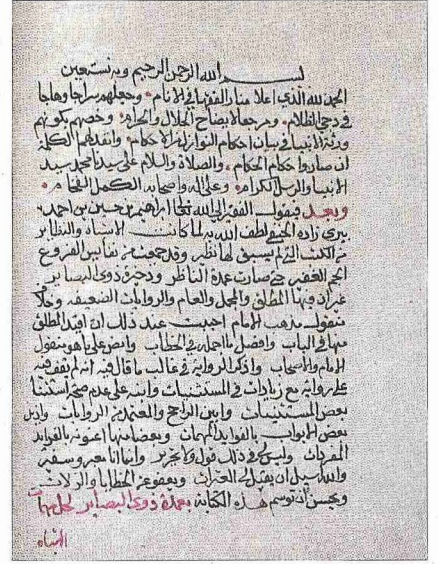 بسم الله الرحمن الرحيم وبه نستعين
الحمد لله الذي اعلا منار الفقها في الانام وجعلهم سراجا وهاجا
في دجى الظلام ومرجعا لايضاح الحلال والحرام وخصهم بكونهم
ورثة الانبيا في بيان احكام النوازل والاحكام وانفذ لهم الكلمة
ان صاروا حكام الحكام والصلاة والسلام على سيدنا محمد سيد
الانبيا والرسل الكرام وعلى اله واصحابه الكمل الفخام
وبعد فيقول الفقير الى الله تعالى ابراهيم بن حسين بن احمد بن
بيري زاده الحنفي لطف الله به لما كانت الاشباه والنظاير
من الكتب التي لم يسبق لها نظير وقد جمعت من نفايس الفروع
الجم الغفير حتى صارت عمدة الناظر وذخيرة ذوي البصاير
غير ان فيها المطلق والمجمل والعام والروايات الضعيفه وخلا
منقول مذهب الامام احببت عند ذلك ان اقيد المطلق
منها في الباب وافصل ما اجمله في الخطاب وانص على ما هو منقول
الامام والاصحاب واذكر الرواية في غالب ما قال فيه انه لم يقف فيه
على رواية مع زيادات في المستثنيات وانبه على عدم صحة استثنا
بعض المستثنيات وابين الراجح والمعتمد من الروايات واذيل
بعض الابواب بالفوايد المهمات وبعضا منها اعنونه بالفوايد
المفردات وليس لي في ذلك قول ولا تحرير وانما انا معبر وسفير
والله اسيل ان يقيل لي العثرات ويعفو عن الخطايا والزلات
ويحسن ان توسم هذه الكتابة بعمدة ذوي البصاير لحل مهمات
الاشباه